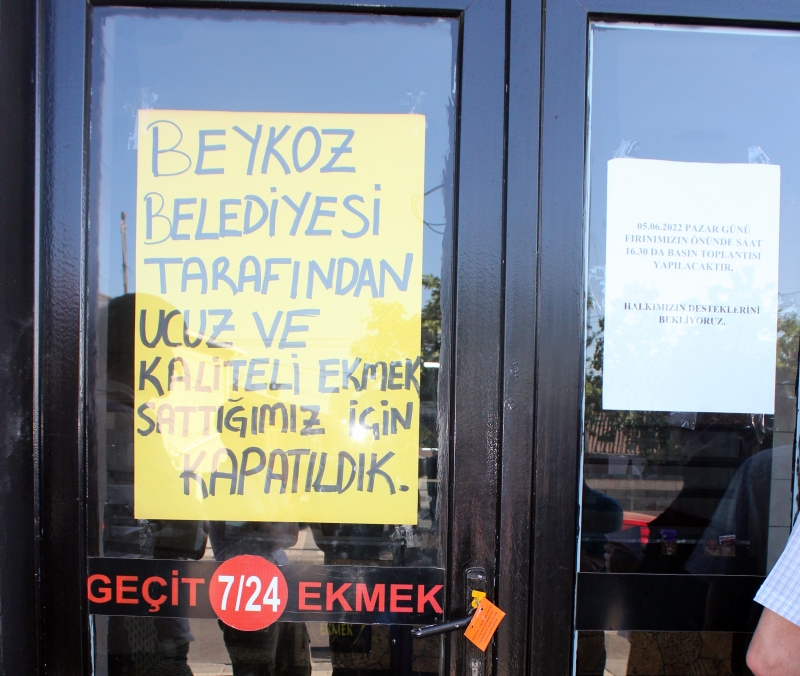 BEYKOZ
BELEDİYESİ
TARAFINDAN
UCUZ VE
KALİTELİ EKMEK
SATTIĞIMIZ İÇİN
KAPATILDIK.
05.06.2022 PAZAR GÜNÜ
FIRINIMIZIN ÖNÜNDE SAAT
16.30 DA BASIN TOPLANTISI
YAPILACAKTIR.
HALKIMIZIN DESTEKLERİNİ
BEKLİYORUZ.
GEÇİT 7/24 EKMEK
EKMEK